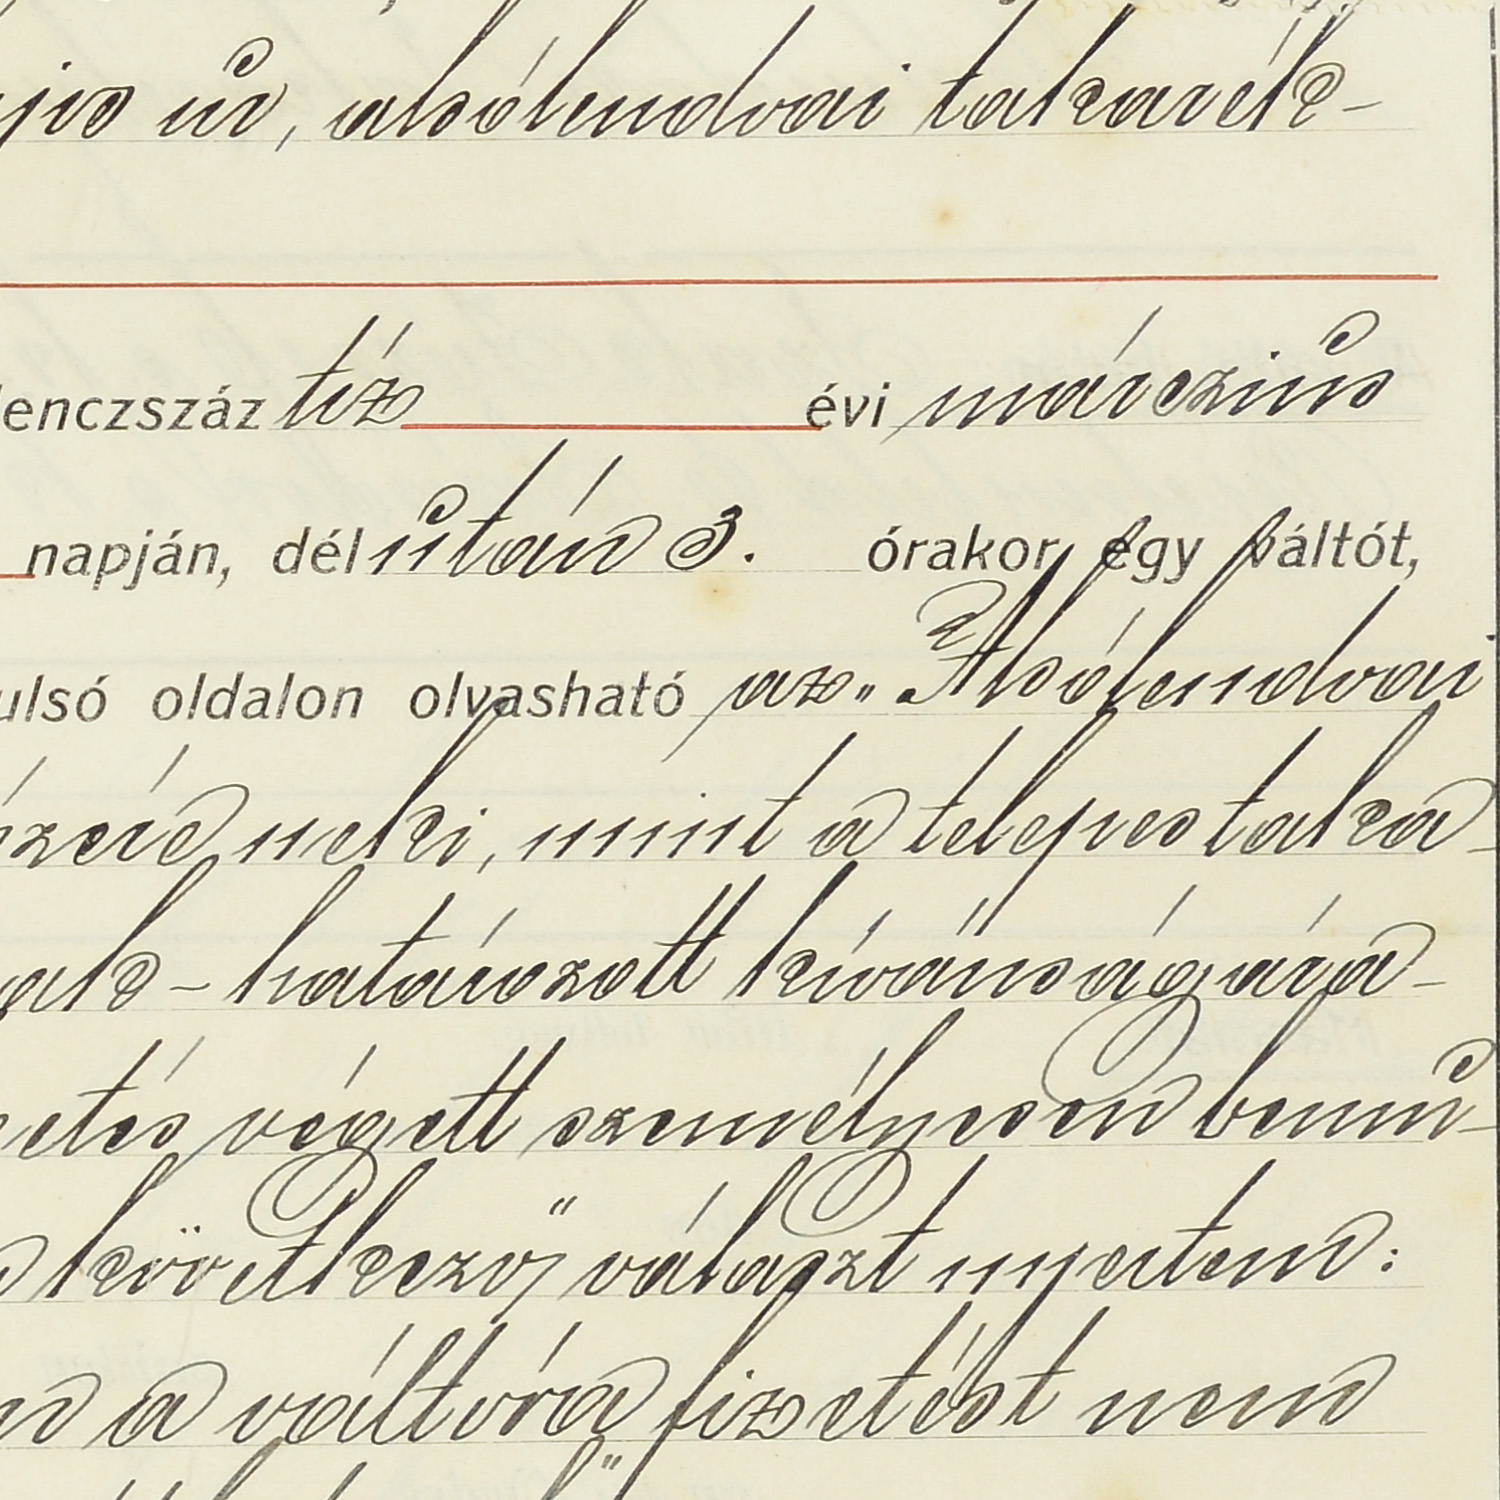 úr, alsólendvai takarék-
lenczszáz tíz évi márczius
napján, délután 3. órakor egy váltót,
ulsó oldalon olvasható az „Alsólendvai
neki, mint a telepes taka-
határozott kívánságára-
etés végett személyesen benn-
következő választ nyertem:
a váltóra fizetést nem